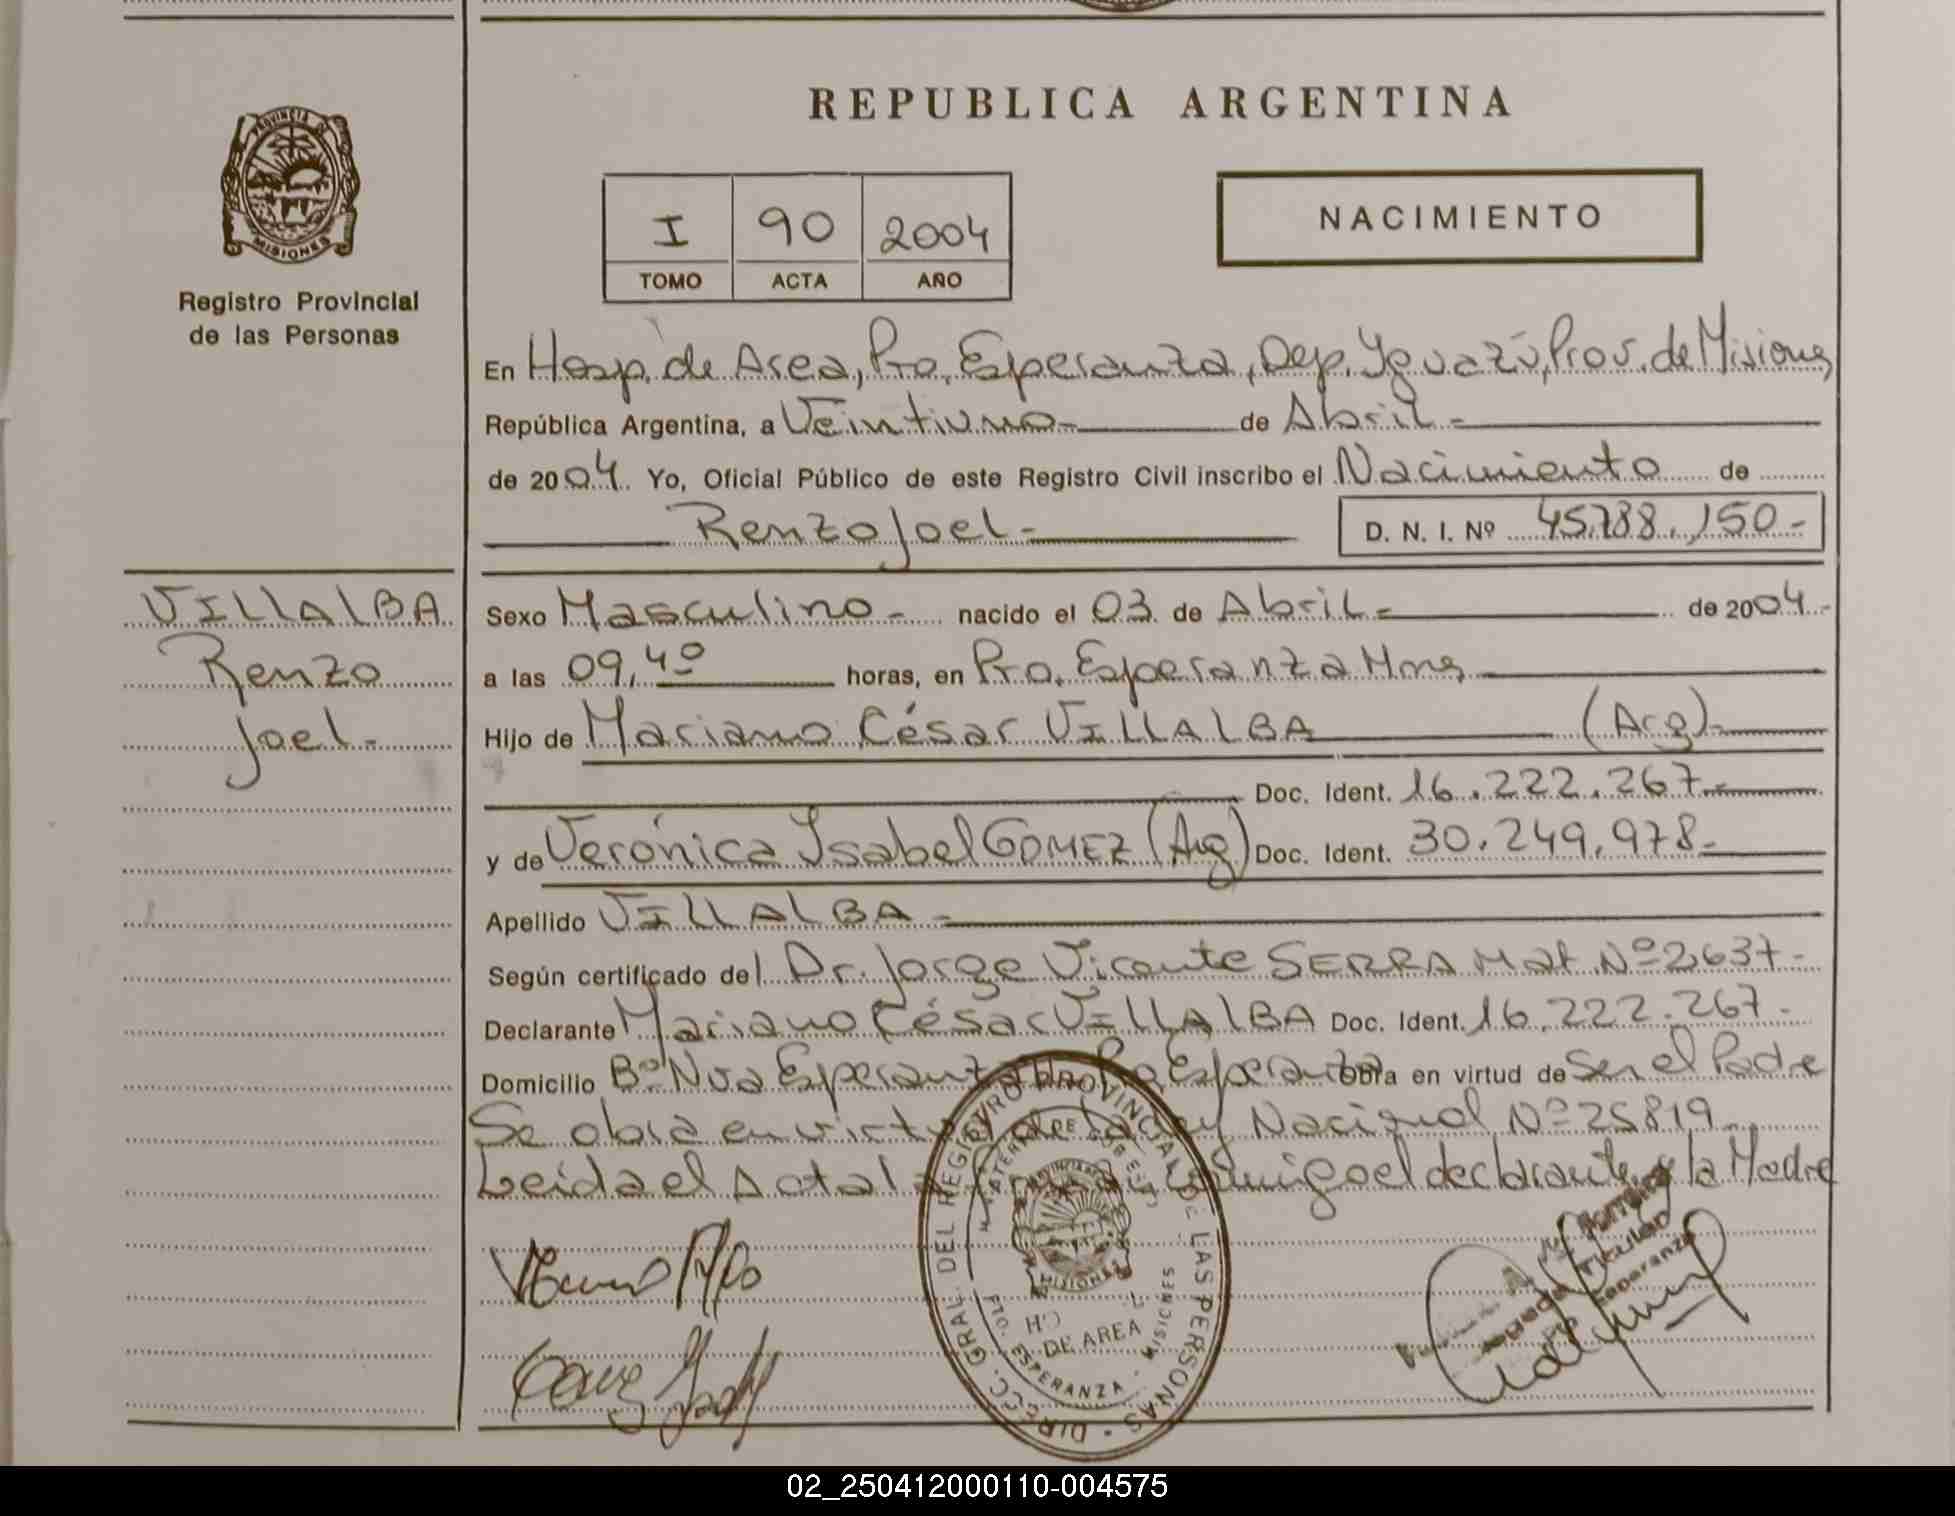 REPUBLICA ARGENTINA
PROVINCIA DE
MISIONES
Registro Provincial
de las Personas
I 90 2004
TOMO ACTA AÑO
NACIMIENTO
En Hosp. de Area, Pto. Esperanza, Dep. Yguazú, Prov. de Misiones
República Argentina, a Veintiuno- de Abril-
de 2004. Yo, Oficial Público de este Registro Civil inscribo el Nacimiento de
Renzo Joel- D. N. I. Nº 45.788.150-
VILLALBA
Renzo
Joel-
Sexo Masculino- nacido el 03 de Abril- de 2004-
a las 09,40 horas, en Pto. Esperanza Mnes
Hijo de Mariano César VILLALBA (Arg)-
Doc. Ident. 16.222.267-
y de Verónica Ysabel GOMEZ (Arg) Doc. Ident. 30.249.978-
Apellido VILLALBA-
Según certificado del Dr. Jorge Vicente SERRA Mat. Nº 2637-
Declarante Mariano César VILLALBA Doc. Ident. 16.222.267-
Domicilio Bº Nva Esperanza Pto Esperanza obra en virtud de Ser el Padre
Se obra en virtud de la Ley Nacional Nº 25819
Leida el Acta la conmigo el declarante y la Madre
DIRECC. GRAL. DEL REGISTRO PROVINCIAL DE LAS PERSONAS
PROVINCIA DE
MISIONES
DE AREA
PTO. ESPERANZA - MISIONES
Titular
Pto Esperanza
02_250412000110-004575